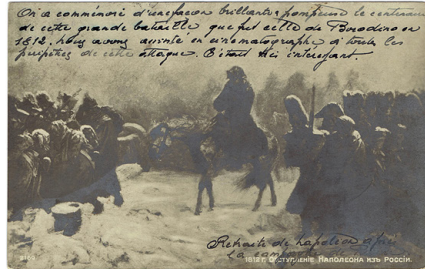 On a commencé d'une façon brillante & pompeuse le centenaire
de cette grande bataille que fut celle de Borodino en
1812. Nous avons assisté en cinématographe à toutes les
péripéties de cette attaque. C'était très intéressant.
Retraite de Napoléon après
La
1812 г. Отступленіе Наполеона изъ Россіи.